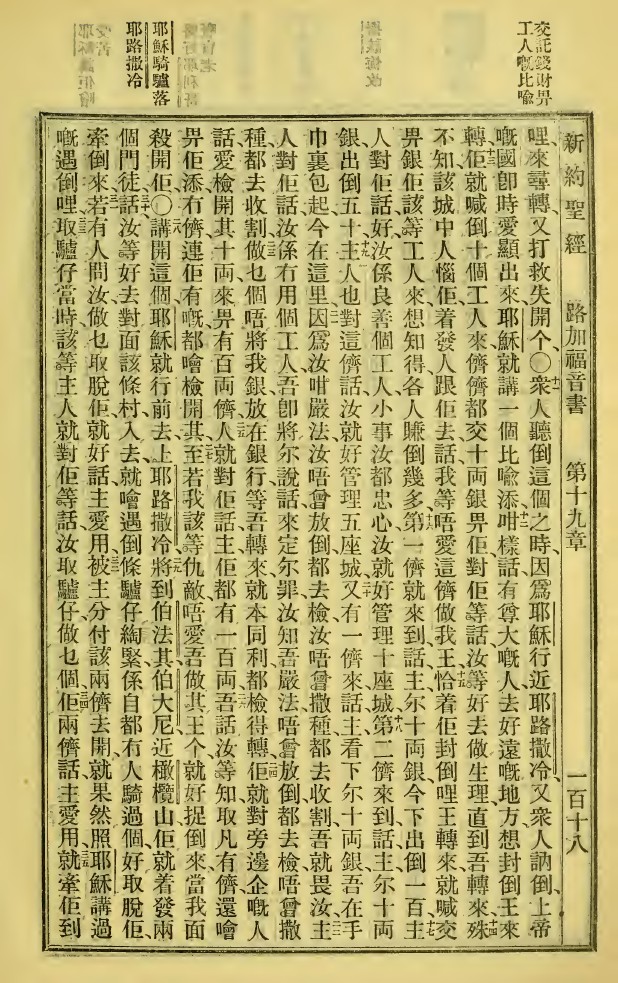 交託錢財畀
工人嘅比喻
耶穌騎驢落
耶路撒冷
新約聖經 路加福音書 第十九章 一百十八
哩來尋轉又打救失開个○十一衆人聽倒這個之時因爲耶穌行近耶路撒冷又衆人訥倒上帝
嘅國卽時愛顯出來耶穌就講一個比喻添十二咁樣話有尊大嘅人去好遠嘅地方想封倒王來
轉十三佢就喊倒十個工人來儕儕都交十両銀畀佢對佢等話汝等好去做生理直到吾轉來十四殊
不知該城中人惱佢着發人跟佢去話我等唔愛這儕做我王十五恰着佢封倒哩王轉來就喊交
畀銀佢該等工人來想知得各人賺倒幾多十六第一儕就來到話主尔十両銀今下出倒一百十七主
人對佢話好汝係良善個工人小事汝都忠心汝就好管理十座城十八第二儕來到話主尔十両
銀出倒五十十九主人也對這儕話汝就好管理五座城二十又有一儕來話主看下尔十両銀吾在手
巾裏包起今在這里二一因爲汝咁嚴法汝唔曾放倒都去檢汝唔曾撒種都去收割吾就畏汝二二主
人對佢話汝係冇用個工人吾卽將尔說話來定尔罪汝知吾嚴法唔曾放倒都去檢唔曾撒
種都去收割二三做乜個唔將我銀放在銀行等吾轉來就本同利都檢得轉二四佢就對旁邊企嘅人
話愛檢開其十両來畀有百両儕二五人就對佢話主佢都有一百両二六吾話汝等知取凡有儕還噲
畀佢添冇儕連佢有嘅都噲檢開其二七至若我該等仇敵唔愛吾做其王个就好捉倒來當我面
殺開佢○二八講開這個耶穌就行前去上耶路撒冷二九將到伯法其伯大尼近橄欖山佢就着發兩
個門徒三十話汝等好去對面該條村入去就噲遇倒條驢仔綯緊係自都冇人騎過個好取脫佢
牽倒來三一若有人問汝做乜取脫佢就好話主愛用被主分付該兩儕三二去開就果然照耶穌講過
嘅遇倒哩三三取驢仔當時該等主人就對佢等話汝取驢仔做乜個三四佢兩儕話主愛用三五就牽佢到